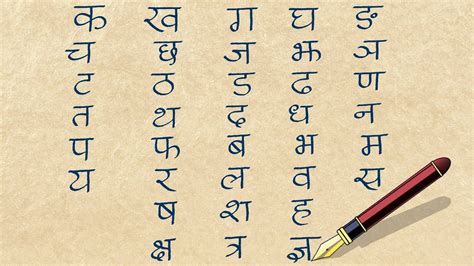 क ख ग घ ङ
च छ ज झ ञ
ट ठ ड ढ ण
त थ द ध न
प फ ब भ म
य र ल व स
ष श ह
क्ष त्र ज्ञ